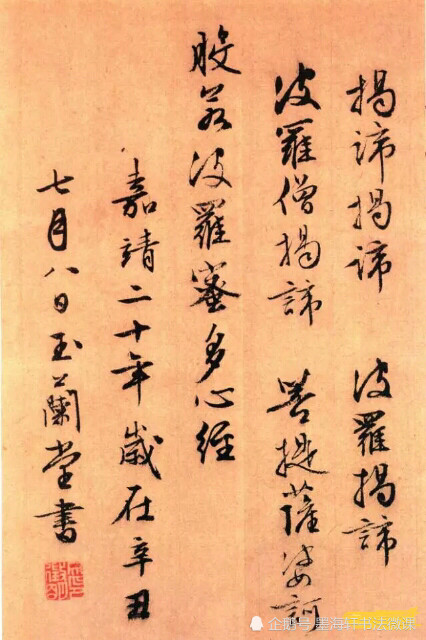 揭諦揭諦 波羅揭諦
波羅僧揭諦 菩提薩婆訶
般若波羅蜜多心經
嘉靖二十年歲在辛丑
七月八日玉蘭堂書
企鹅号 墨海轩书法微课